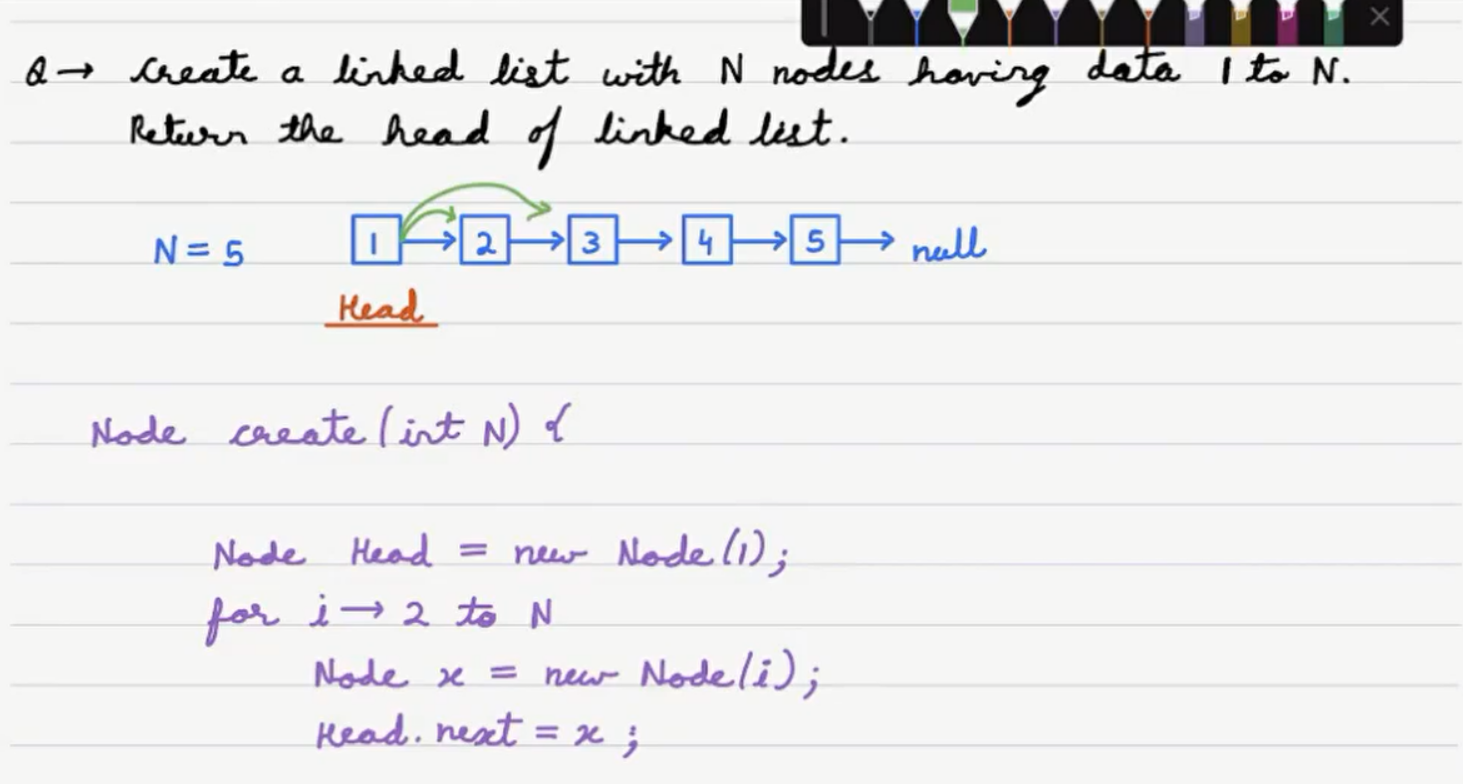 Q → Create a linked list with N nodes having data 1 to N.
Return the head of linked list.
N = 5 1 → 2 → 3 → 4 → 5 → null
Head
Node create(int N) {
Node Head = new Node(1);
for i → 2 to N
Node x = new Node(i);
Head.next = x;